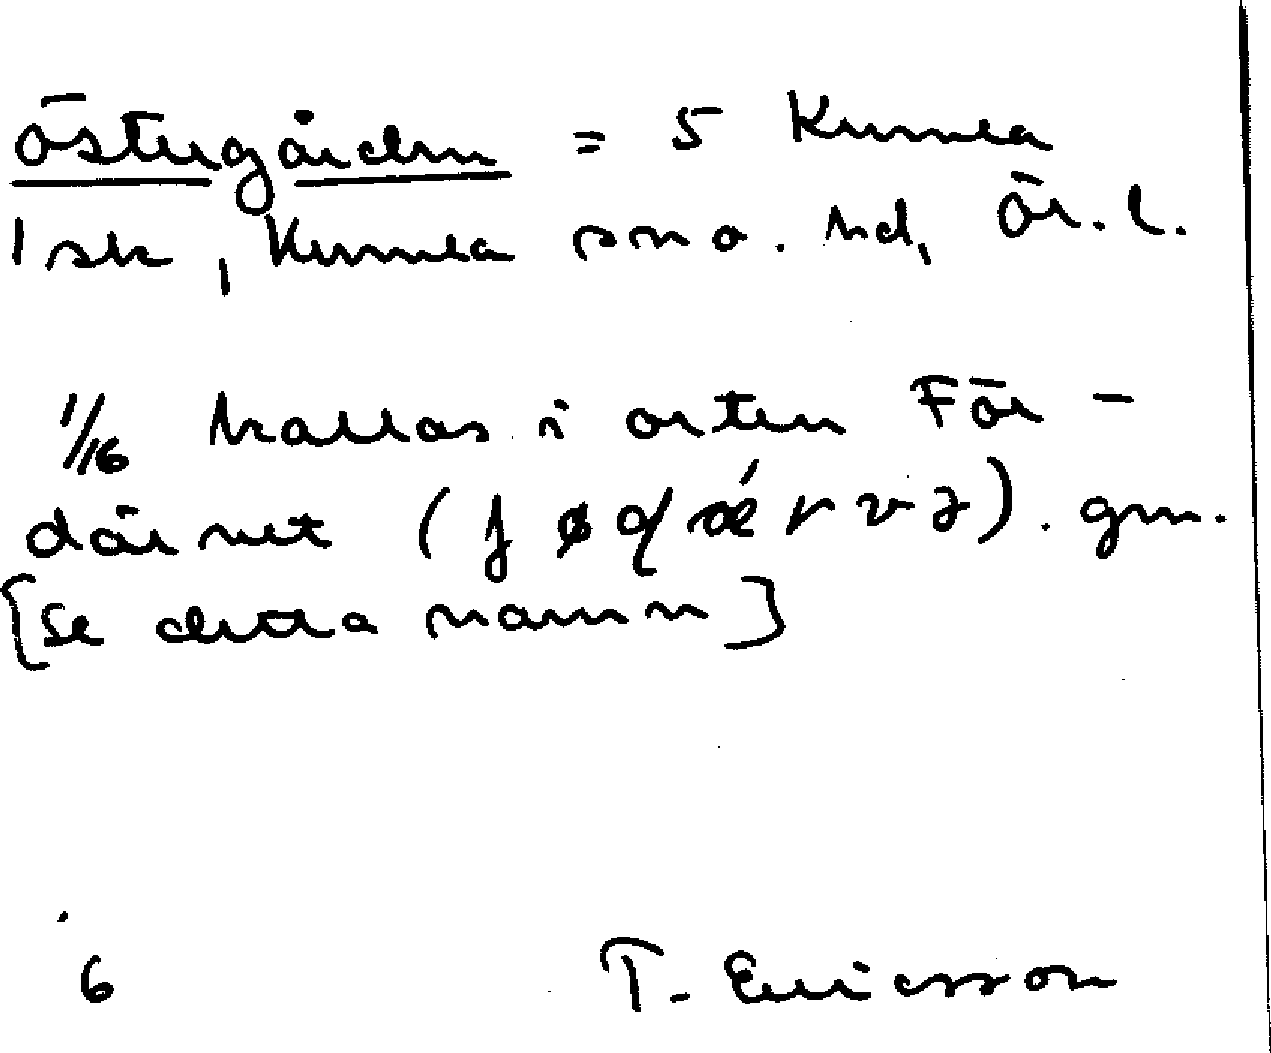 Östergården = 5 Kumla
1 sk, Kumla sn o. hd, Ör. l.
1/16 kallas i orten För-
därvet ( ). gm.
[se detta namn]
6 T. Ericsson